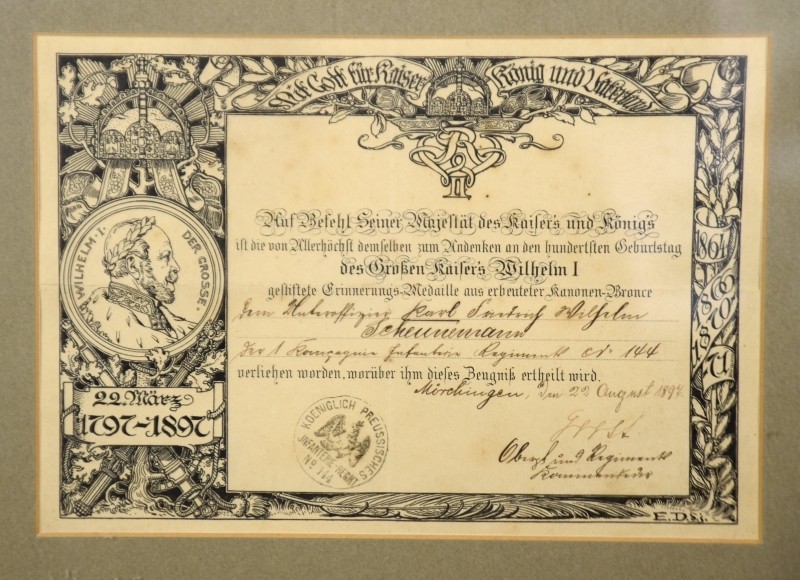 Mit Gott für Kaiser König und Vaterland
WILHELM·I· DER GROSSE·
22. März
1797-1897
W R
II
Auf Befehl Seiner Majestät des Kaisers und Königs
ist die von Allerhöchst demselben zum Andenken an den hundertsten Geburtstag
des Großen Kaisers Wilhelm I
gestiftete Erinnerungs-Medaille aus erbeuteter Kanonen-Bronce
dem Unteroffizier Karl Friedrich Wilhelm
Scheunemann
der 1 Kompagnie Infanterie Regiments No 144
verliehen worden, worüber ihm dieses Zeugniß ertheilt wird.
Mörchingen, den 22 August 1897
KOENIGLICH PREUSSISCHES
INFANTERIE REGMT
No 144
Oberst und Regiments
Kommandeur
1864
1866
1870
1871
E.D.